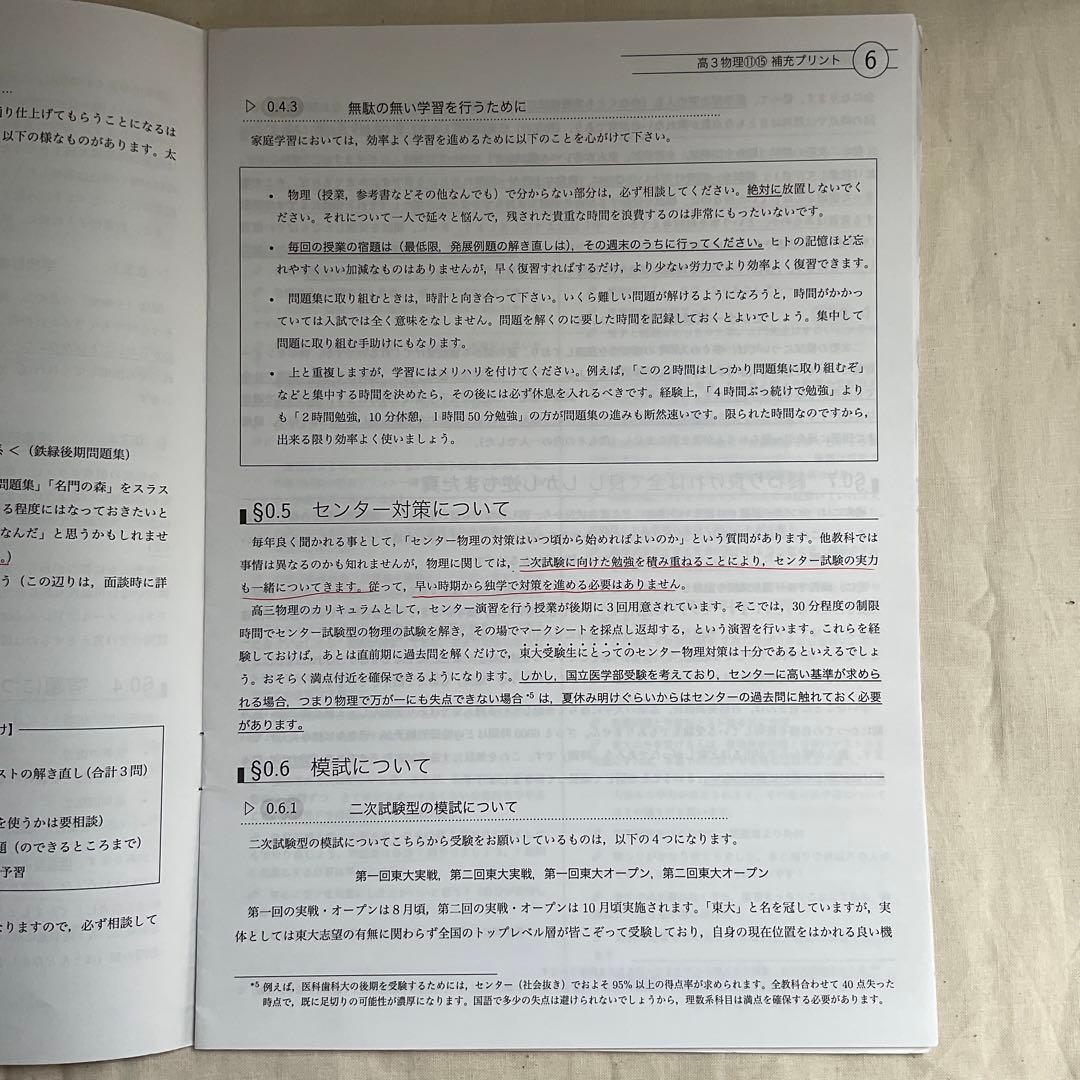 …
り仕上げてもらうことになるは
以下の様なものがあります。太
<（鉄緑後期問題集）
問題集」「名門の森」をスラス
る程度にはなっておきたいと
なんだ」と思うかもしれませ
。)
う（この辺りは，面談時に詳
け】
ストの解き直し(合計３問)
を使うかは要相談）
題（のできるところまで）
予習
なりますので，必ず相談して
高３物理⑪⑮ 補充プリント 6
▷ 0.4.3 無駄の無い学習を行うために
家庭学習においては，効率よく学習を進めるために以下のことを心がけて下さい。
• 物理（授業，参考書などその他なんでも）で分からない部分は，必ず相談してください。絶対に放置しないでく
ださい。それについて一人で延々と悩んで，残された貴重な時間を浪費するのは非常にもったいないです。
• 毎回の授業の宿題は（最低限，発展例題の解き直しは），その週末のうちに行ってください。ヒトの記憶ほど忘
れやすくいい加減なものはありませんが，早く復習すればするだけ，より少ない労力でより効率よく復習できます。
• 問題集に取り組むときは，時計と向き合って下さい。いくら難しい問題が解けるようになろうと，時間がかかっ
ていては入試では全く意味をなしません。問題を解くのに要した時間を記録しておくとよいでしょう。集中して
問題に取り組む手助けにもなります。
• 上と重複しますが，学習にはメリハリを付けてください。例えば，「この２時間はしっかり問題集に取り組むぞ」
などと集中する時間を決めたら，その後には必ず休息を入れるべきです。経験上，「４時間ぶっ続けで勉強」より
も「２時間勉強，10 分休憩，１時間 50 分勉強」の方が問題集の進みも断然速いです。限られた時間なのですから，
出来る限り効率よく使いましょう。
§0.5 センター対策について
毎年良く聞かれる事として，「センター物理の対策はいつ頃から始めればよいのか」という質問があります。他教科では
事情は異なるのかも知れませんが，物理に関しては，二次試験に向けた勉強を積み重ねることにより，センター試験の実力
も一緒についてきます。従って，早い時期から独学で対策を進める必要はありません。
高三物理のカリキュラムとして，センター演習を行う授業が後期に３回用意されています。そこでは，30 分程度の制限
時間でセンター試験型の物理の試験を解き，その場でマークシートを採点し返却する，という演習を行います。これらを経
験しておけば，あとは直前期に過去問を解くだけで，東大受験生にとってのセンター物理対策は十分であるといえるでしょ
う。おそらく満点付近を確保できるようになります。しかし，国立医学部受験を考えており，センターに高い基準が求めら
れる場合，つまり物理で万が一にも失点できない場合 *5 は，夏休み明けぐらいからはセンターの過去問に触れておく必要
があります。
§0.6 模試について
▷ 0.6.1 二次試験型の模試について
二次試験型の模試についてこちらから受験をお願いしているものは，以下の４つになります。
第一回東大実戦，第二回東大実戦，第一回東大オープン，第二回東大オープン
第一回の実戦・オープンは８月頃，第二回の実戦・オープンは 10 月頃実施されます。「東大」と名を冠していますが，実
体としては東大志望の有無に関わらず全国のトップレベル層が皆こぞって受験しており，自身の現在位置をはかれる良い機
*5 例えば，医科歯科大の後期を受験するためには，センター（社会抜き）でおよそ 95% 以上の得点率が求められます。全教科合わせて 40 点失った
時点で，既に足切りの可能性が濃厚になります。国語で多少の失点は避けられないでしょうから，理数系科目は満点を確保する必要があります。